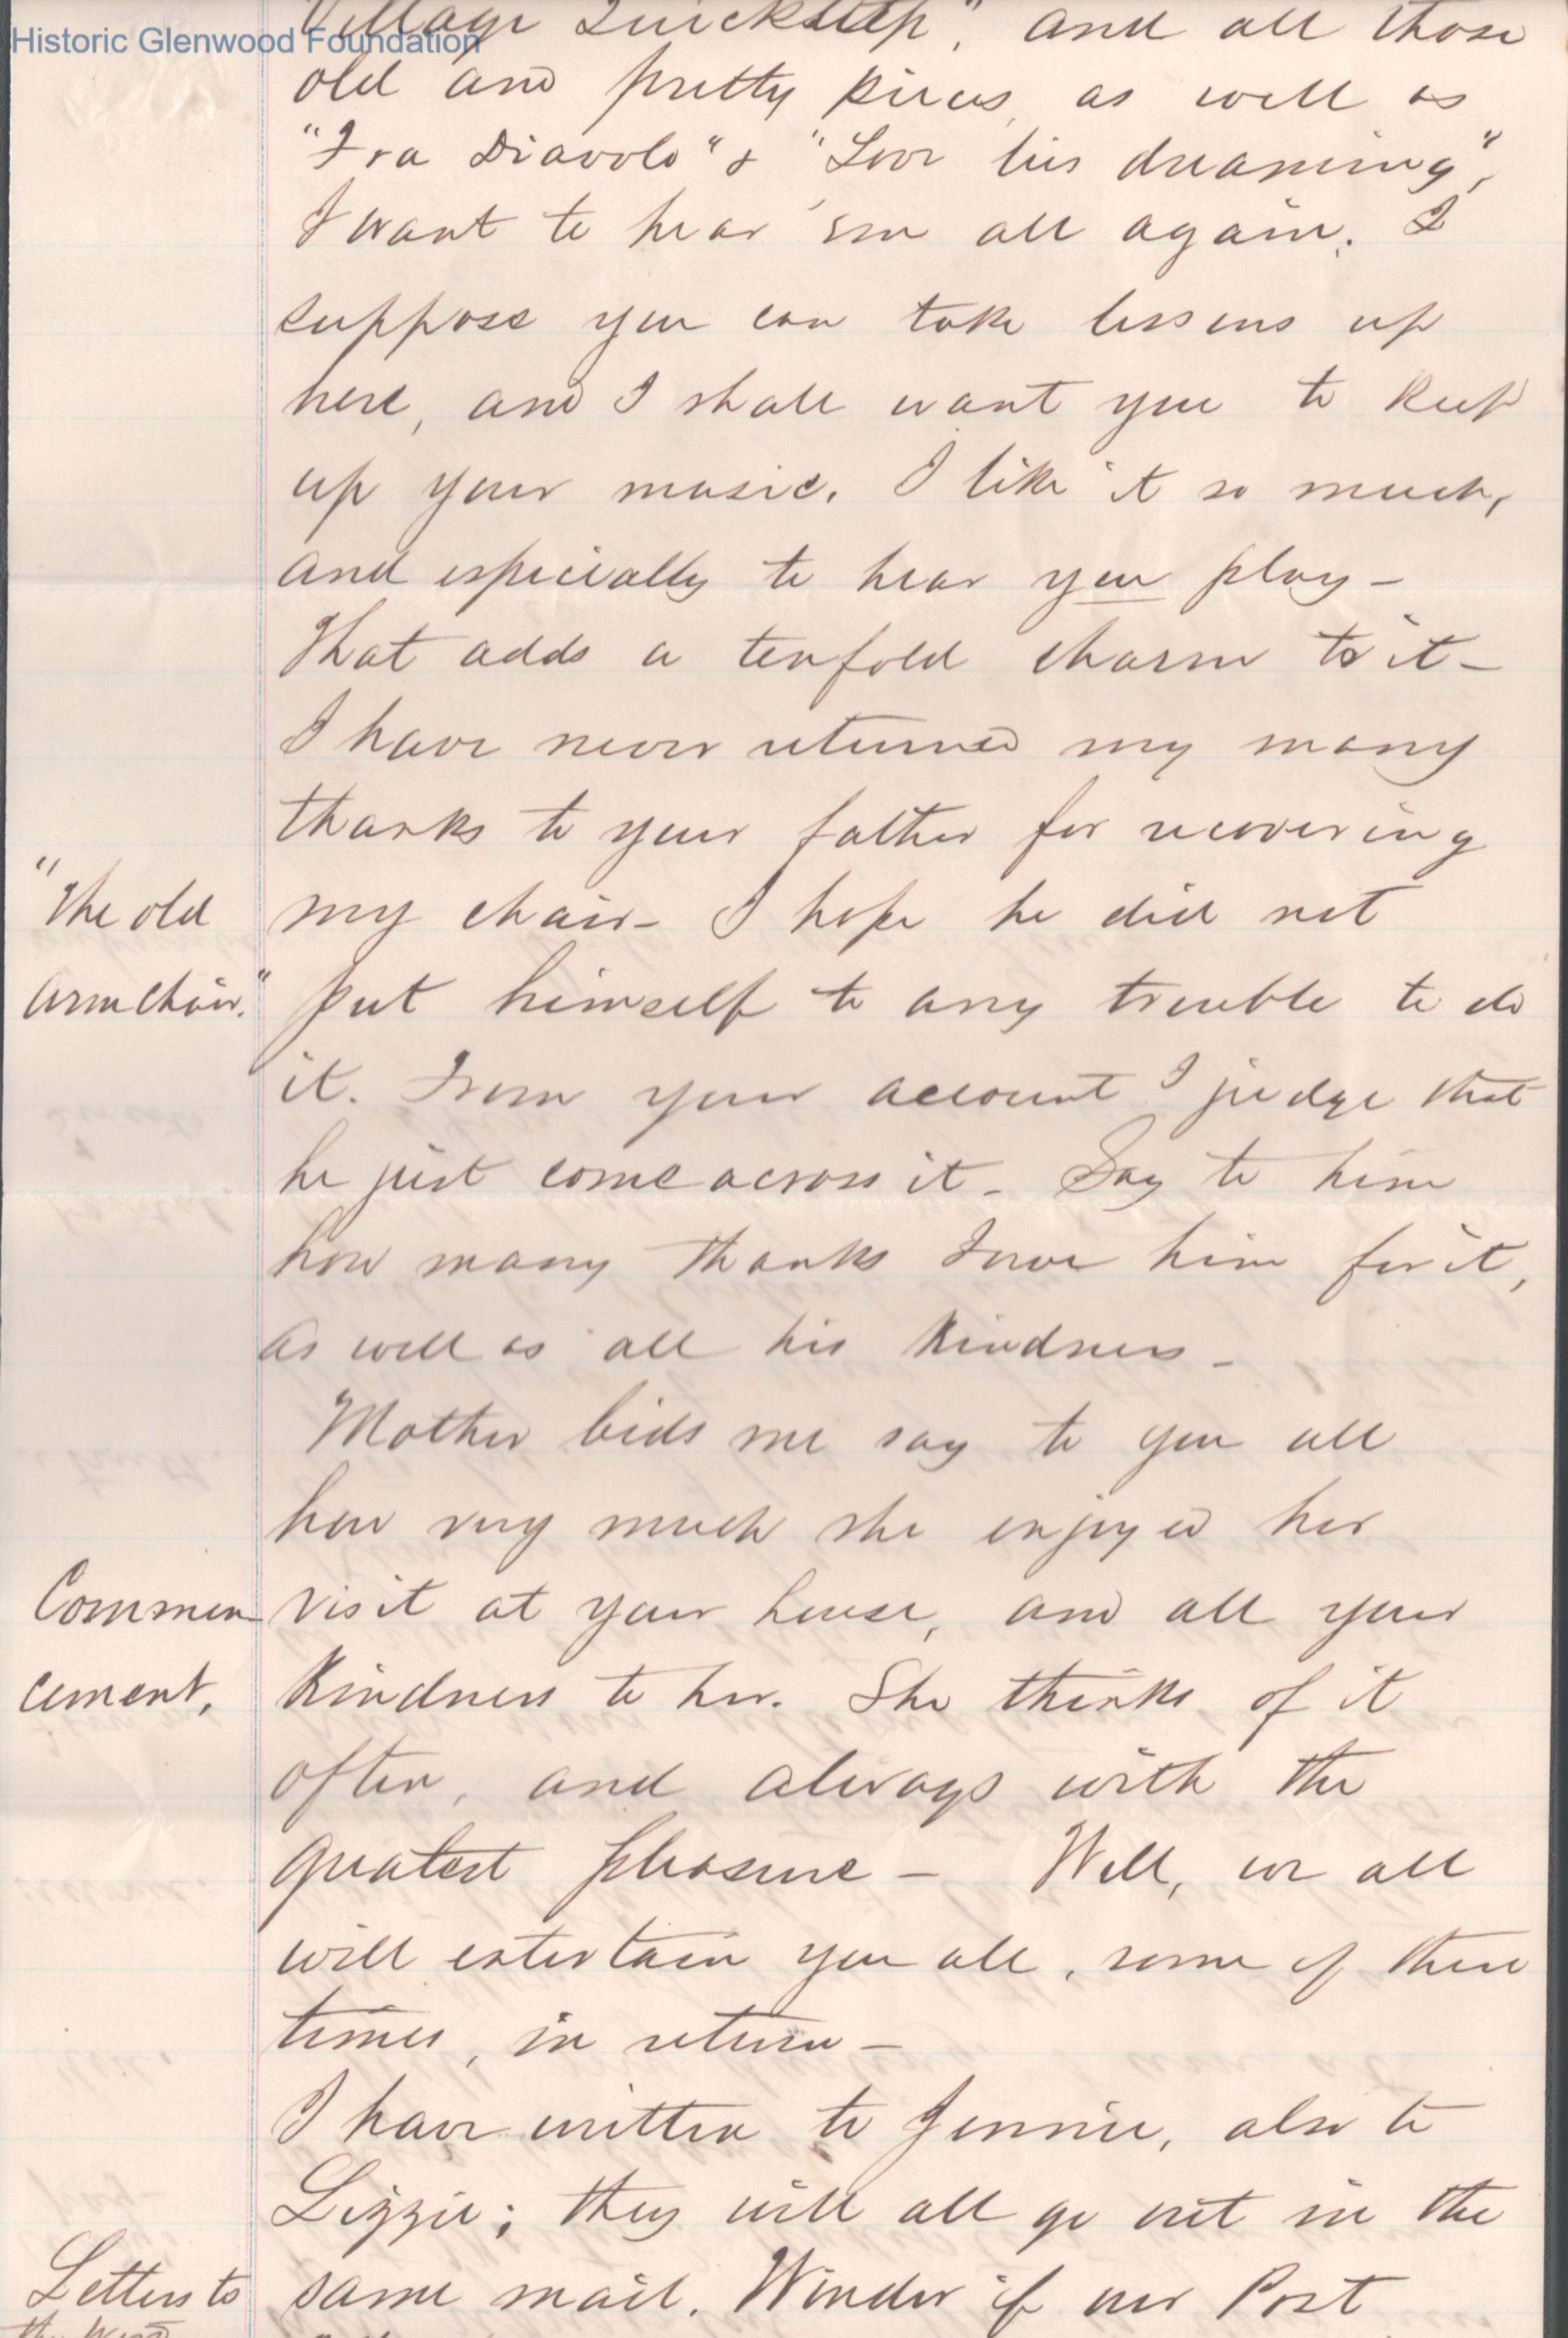 Historic Glenwood Foundation
Village Quickstep", and all those
old and pretty pieces, as well as
"Fra Diavolo" & "Love lies dreaming",
I want to hear 'em all again. I
suppose you can take lessons up
here, and I shall want you to keep
up your music. I like it so much,
and especially to hear you play -
That adds a tenfold charm to it -
I have never returned my many
thanks to your father for recovering
"The old
my chair - I hope he did not
Armchair."
put himself to any trouble to do
it. From your account I judge that
he just come across it - Say to him
how many thanks I owe him for it,
as well as all his kindness -
Mother bids me say to you all
how very much she enjoyed her
Commen-
visit at your house, and all your
cement.
kindness to her. She thinks of it
often, and always with the
greatest pleasure - Well, we all
will entertain you all, some of these
times, in return -
I have written to Jennie, also to
Lizzie; they will all go out in the
Letters to
same mail. Wonder if our Post
the West